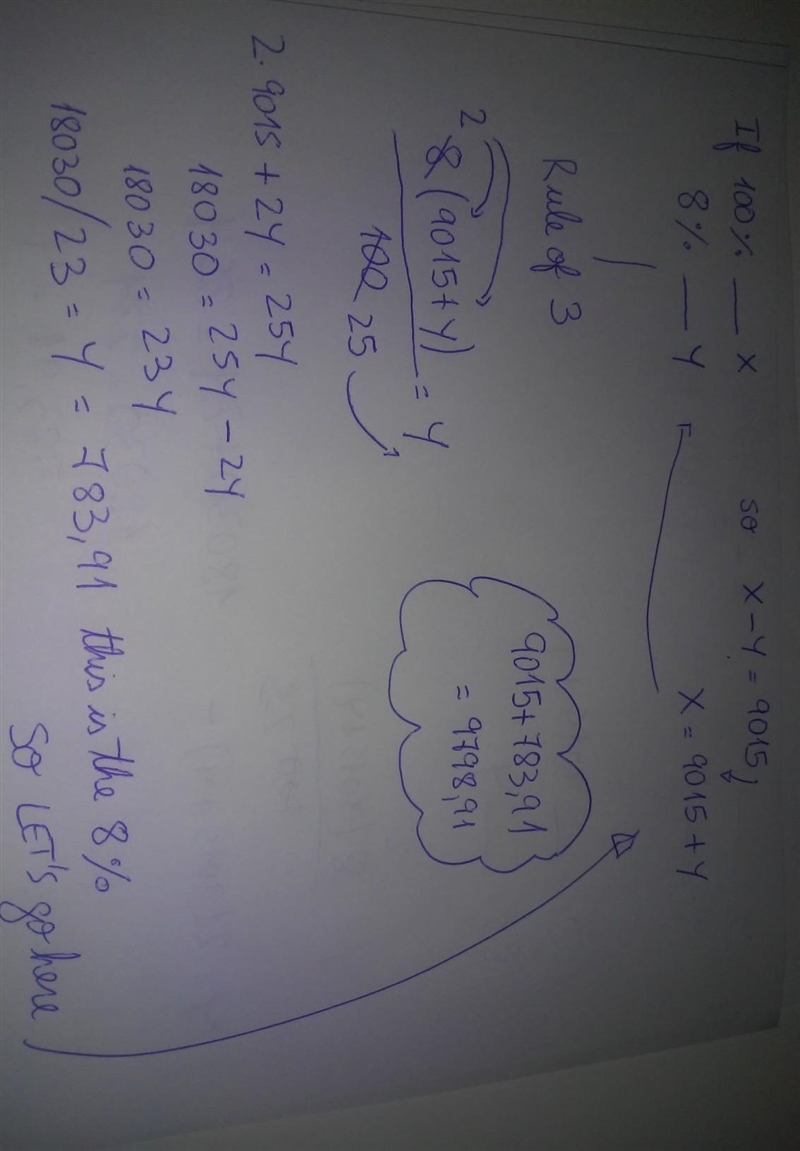 If 100% — X so X - Y = 9015
8% — Y X = 9015 + Y
Rule of 3
2
8 (9015 + Y) = Y
100 25
9015 + 783,91
= 9798,91
2.9015 + 2Y = 25Y
18030 = 25Y - 2Y
18030 = 23Y
18030/23 = Y = 783,91 this is the 8%
SO LET's go here